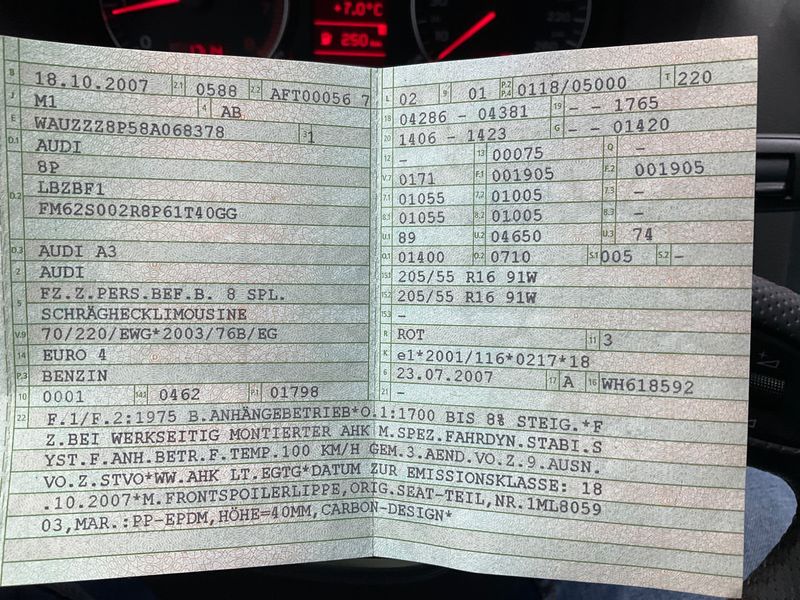 +7.0°C
250 km
B 18.10.2007 2.1 0588 2.2 AFT00056 7
J M1 4 AB
E WAUZZZ8P58A068378 3 1
D.1 AUDI
8P
D.2 LBZBF1
FM62S002R8P61T40GG
D.3 AUDI A3
2 AUDI
5 FZ.Z.PERS.BEF.B. 8 SPL.
SCHRÄGHECKLIMOUSINE
V.9 70/220/EWG*2003/76B/EG
14 EURO 4
P.3 BENZIN
10 0001 14.1 0462 P.1 01798
L 02 9 01 P.2 P.4 0118/05000 T 220
18 04286 - 04381 19 - - 1765
20 1406 - 1423 G - - 01420
12 - 13 00075 Q -
V.7 0171 F.1 001905 F.2 001905
7.1 01055 7.2 01005 7.3 -
8.1 01055 8.2 01005 8.3 -
U.1 89 U.2 04650 U.3 74
O.1 01400 O.2 0710 S.1 005 S.2 -
15.1 205/55 R16 91W
15.2 205/55 R16 91W
15.3 -
R ROT 11 3
K e1*2001/116*0217*18
6 23.07.2007 17 A 16 WH618592
21 -
22 F.1/F.2:1975 B.ANHÄNGEBETRIEB*O.1:1700 BIS 8% STEIG.*F
Z.BEI WERKSEITIG MONTIERTER AHK M.SPEZ.FAHRDYN.STABI.S
YST.F.ANH.BETR.F.TEMP.100 KM/H GEM.3.AEND.VO.Z.9.AUSN.
VO.Z.STVO*WW.AHK LT.EGTG*DATUM ZUR EMISSIONSKLASSE: 18
.10.2007*M.FRONTSPOILERLIPPE,ORIG.SEAT-TEIL,NR.1ML8059
03,MAR.:PP-EPDM,HÖHE=40MM,CARBON-DESIGN*